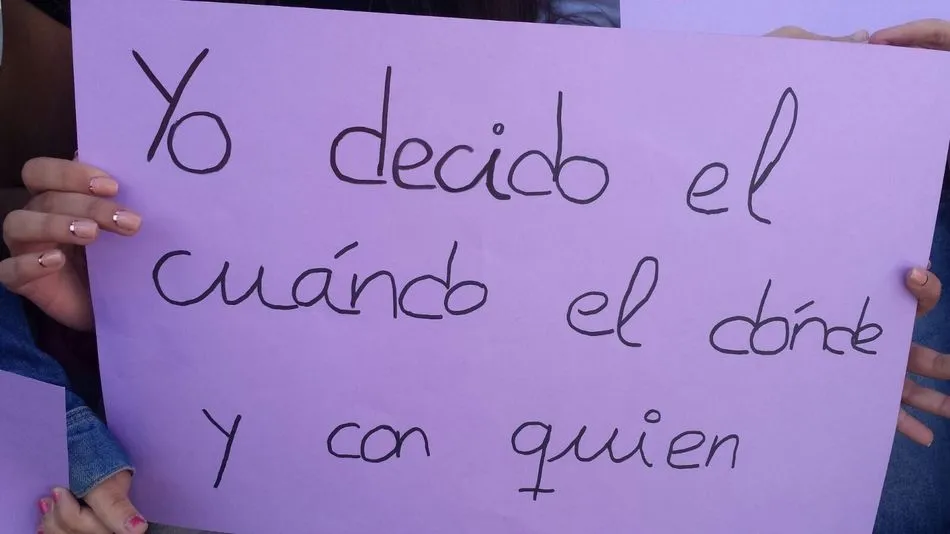 Yo decido el
cuándo el dónde
y con quien